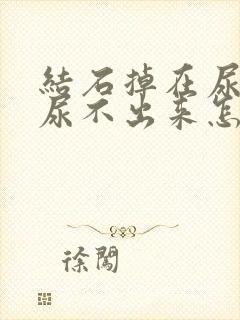 結石掉在尿
尿不出来怎
徐闖